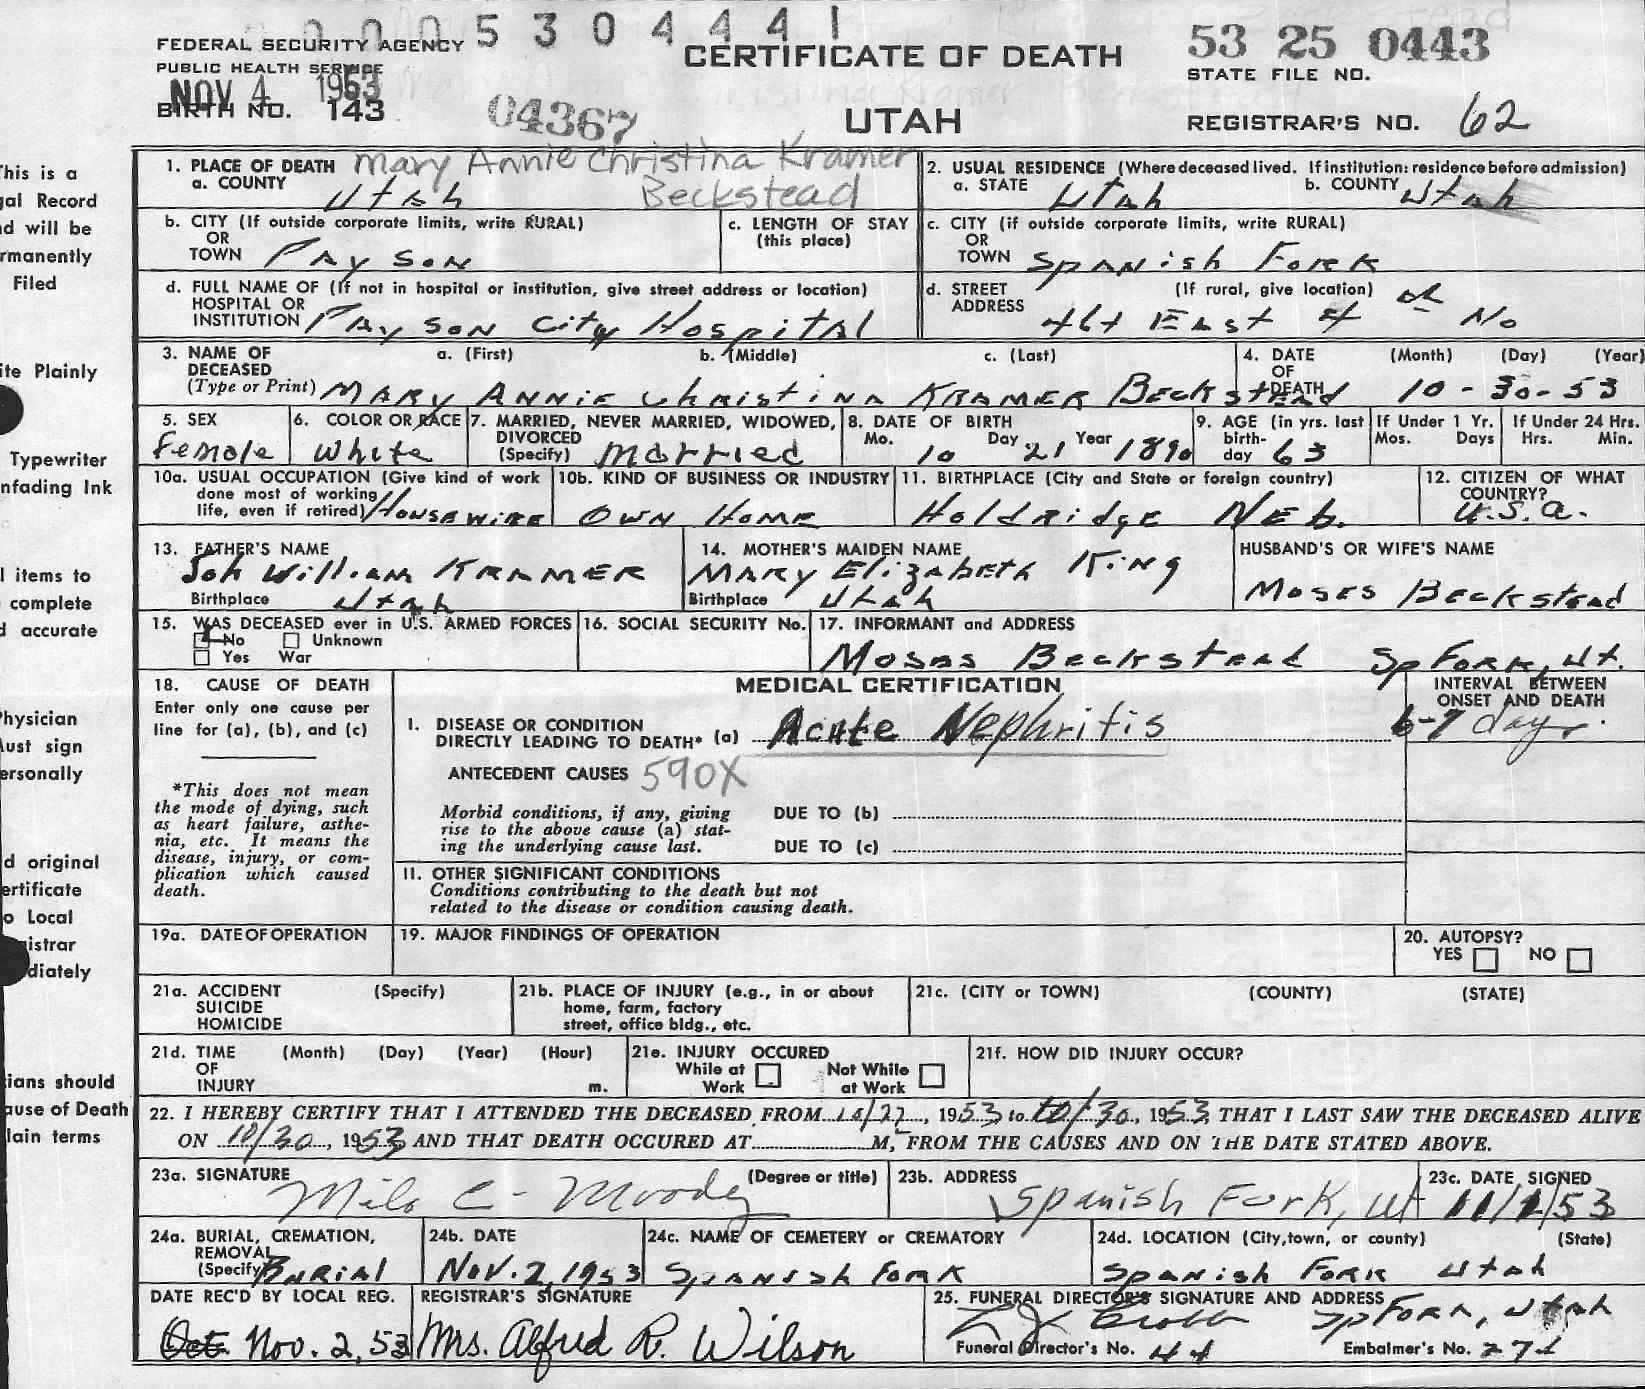 00053044441
FEDERAL SECURITY AGENCY
PUBLIC HEALTH SERVICE
NOV 4 1953
BIRTH NO. 143
04367
CERTIFICATE OF DEATH
UTAH
53 25 0443
STATE FILE NO.
REGISTRAR'S NO. 62
This is a
Legal Record
and will be
Permanently
Filed
Write Plainly
Typewriter
Unfading Ink
All items to
complete
accurate
Physician
Must sign
Personally
original
Certificate
to Local
Registrar
should
Cause of Death
plain terms
Mary Annie Christina Kramer
Beckstead
1. PLACE OF DEATH
a. COUNTY Utah
2. USUAL RESIDENCE (Where deceased lived. If institution: residence before admission)
a. STATE Utah b. COUNTY Utah
b. CITY (If outside corporate limits, write RURAL)
OR
TOWN Payson
c. LENGTH OF STAY
(this place)
c. CITY (if outside corporate limits, write RURAL)
OR
TOWN Spanish Fork
d. FULL NAME OF (If not in hospital or institution, give street address or location)
HOSPITAL OR
INSTITUTION Payson City Hospital
d. STREET (If rural, give location)
ADDRESS 464 East 4 th No
3. NAME OF a. (First) b. (Middle) c. (Last)
DECEASED
(Type or Print) MARY ANNIE Christina KRAMER Beckstead
4. DATE (Month) (Day) (Year)
OF
DEATH 10-30-53
5. SEX
Female
6. COLOR OR RACE
White
7. MARRIED, NEVER MARRIED, WIDOWED,
DIVORCED
(Specify) Married
8. DATE OF BIRTH
Mo. Day Year
10 21 1890
9. AGE (in yrs. last
birth-
day 63
If Under 1 Yr.
Mos. Days
If Under 24 Hrs.
Hrs. Min.
10a. USUAL OCCUPATION (Give kind of work
done most of working
life, even if retired) Housewife
10b. KIND OF BUSINESS OR INDUSTRY
Own Home
11. BIRTHPLACE (City and State or foreign country)
Holdridge Neb.
12. CITIZEN OF WHAT
COUNTRY?
U.S.A.
13. FATHER'S NAME
Joh William KRAMER
Birthplace Utah
14. MOTHER'S MAIDEN NAME
Mary Elizabeth King
Birthplace Utah
HUSBAND'S OR WIFE'S NAME
Moses Beckstead
15. WAS DECEASED ever in U.S. ARMED FORCES
No Unknown
Yes War
16. SOCIAL SECURITY No.
17. INFORMANT and ADDRESS
Moses Beckstead Sp Fork, Ut.
18. CAUSE OF DEATH
Enter only one cause per
line for (a), (b), and (c)
*This does not mean
the mode of dying, such
as heart failure, asthe-
nia, etc. It means the
disease, injury, or com-
plication which caused
death.
MEDICAL CERTIFICATION
INTERVAL BETWEEN
ONSET AND DEATH
I. DISEASE OR CONDITION
DIRECTLY LEADING TO DEATH* (a) Acute Nephritis 6-7 days.
ANTECEDENT CAUSES 590X
Morbid conditions, if any, giving
rise to the above cause (a) stat-
ing the underlying cause last.
DUE TO (b)
DUE TO (c)
II. OTHER SIGNIFICANT CONDITIONS
Conditions contributing to the death but not
related to the disease or condition causing death.
19a. DATE OF OPERATION
19. MAJOR FINDINGS OF OPERATION
20. AUTOPSY?
YES NO
21a. ACCIDENT (Specify)
SUICIDE
HOMICIDE
21b. PLACE OF INJURY (e.g., in or about
home, farm, factory
street, office bldg., etc.
21c. (CITY or TOWN) (COUNTY) (STATE)
21d. TIME (Month) (Day) (Year) (Hour)
OF
INJURY m.
21e. INJURY OCCURED
While at Not While
Work at Work
21f. HOW DID INJURY OCCUR?
22. I HEREBY CERTIFY THAT I ATTENDED THE DECEASED FROM 10/22, 1953 to 10/30, 1953, THAT I LAST SAW THE DECEASED ALIVE
ON 10/30, 1953 AND THAT DEATH OCCURED AT M, FROM THE CAUSES AND ON THE DATE STATED ABOVE.
23a. SIGNATURE (Degree or title)
Milo C - Moody
23b. ADDRESS
Spanish Fork, Ut
23c. DATE SIGNED
11/1/53
24a. BURIAL, CREMATION,
REMOVAL
(Specify) Burial
24b. DATE
Nov. 2, 1953
24c. NAME OF CEMETERY or CREMATORY
Spanish Fork
24d. LOCATION (City, town, or county) (State)
Spanish Fork Utah
DATE REC'D BY LOCAL REG.
Oct Nov. 2, 53
REGISTRAR'S SIGNATURE
Mrs. Alfred R. Wilson
25. FUNERAL DIRECTOR'S SIGNATURE AND ADDRESS
Sp Fork, Utah
Funeral Director's No. 44
Embalmer's No. 271